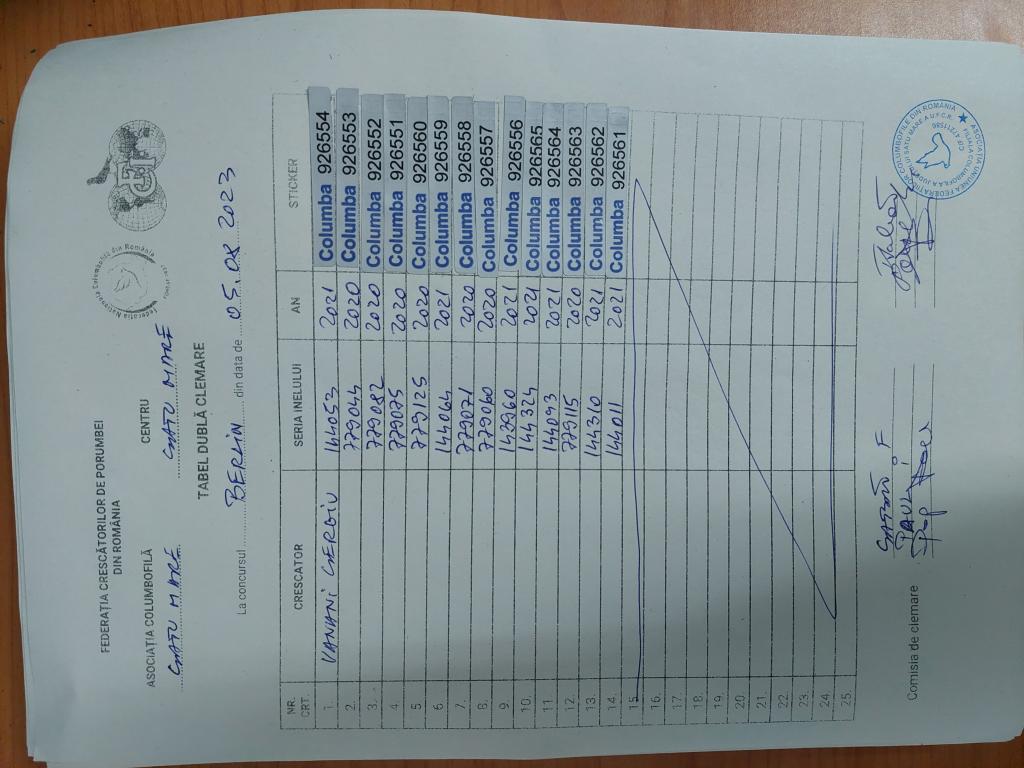 FEDERAȚIA CRESCĂTORILOR DE PORUMBEI
DIN ROMÂNIA
ASOCIAȚIA COLUMBOFILĂ CENTRU
SATU MARE SATU MARE
TABEL DUBLĂ CLEMARE
La concursul BERLIN din data de 05.08 2023
NR. CRT. CRESCATOR SERIA INELULUI AN STICKER
1. VANANI SERGIU 144053 2021 Columba 926554
2. 779044 2020 Columba 926553
3. 779082 2020 Columba 926552
4. 779075 2020 Columba 926551
5. 779125 2020 Columba 926560
6. 144064 2021 Columba 926559
7. 779071 2020 Columba 926558
8. 779060 2020 Columba 926557
9. 143960 2021 Columba 926556
10. 144324 2021 Columba 926565
11. 144093 2021 Columba 926564
12. 779115 2020 Columba 926563
13. 144310 2021 Columba 926562
14. 144011 2021 Columba 926561
15.
16.
17.
18.
19.
20.
21.
22.
23.
24.
25.
Comisia de clemare